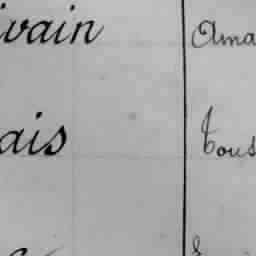 ivain Ama
ais Tous